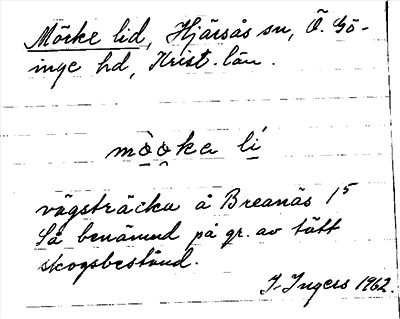 Mörke lid, Hjärsås sn, Ö. Gö-
inge hd, Krist. län.
mò̱o̯ka lí̱
vägsträcka å Breanäs 1⁵
Så benämnd på gr. av tätt
skogsbestånd.
I. Ingers 1962.